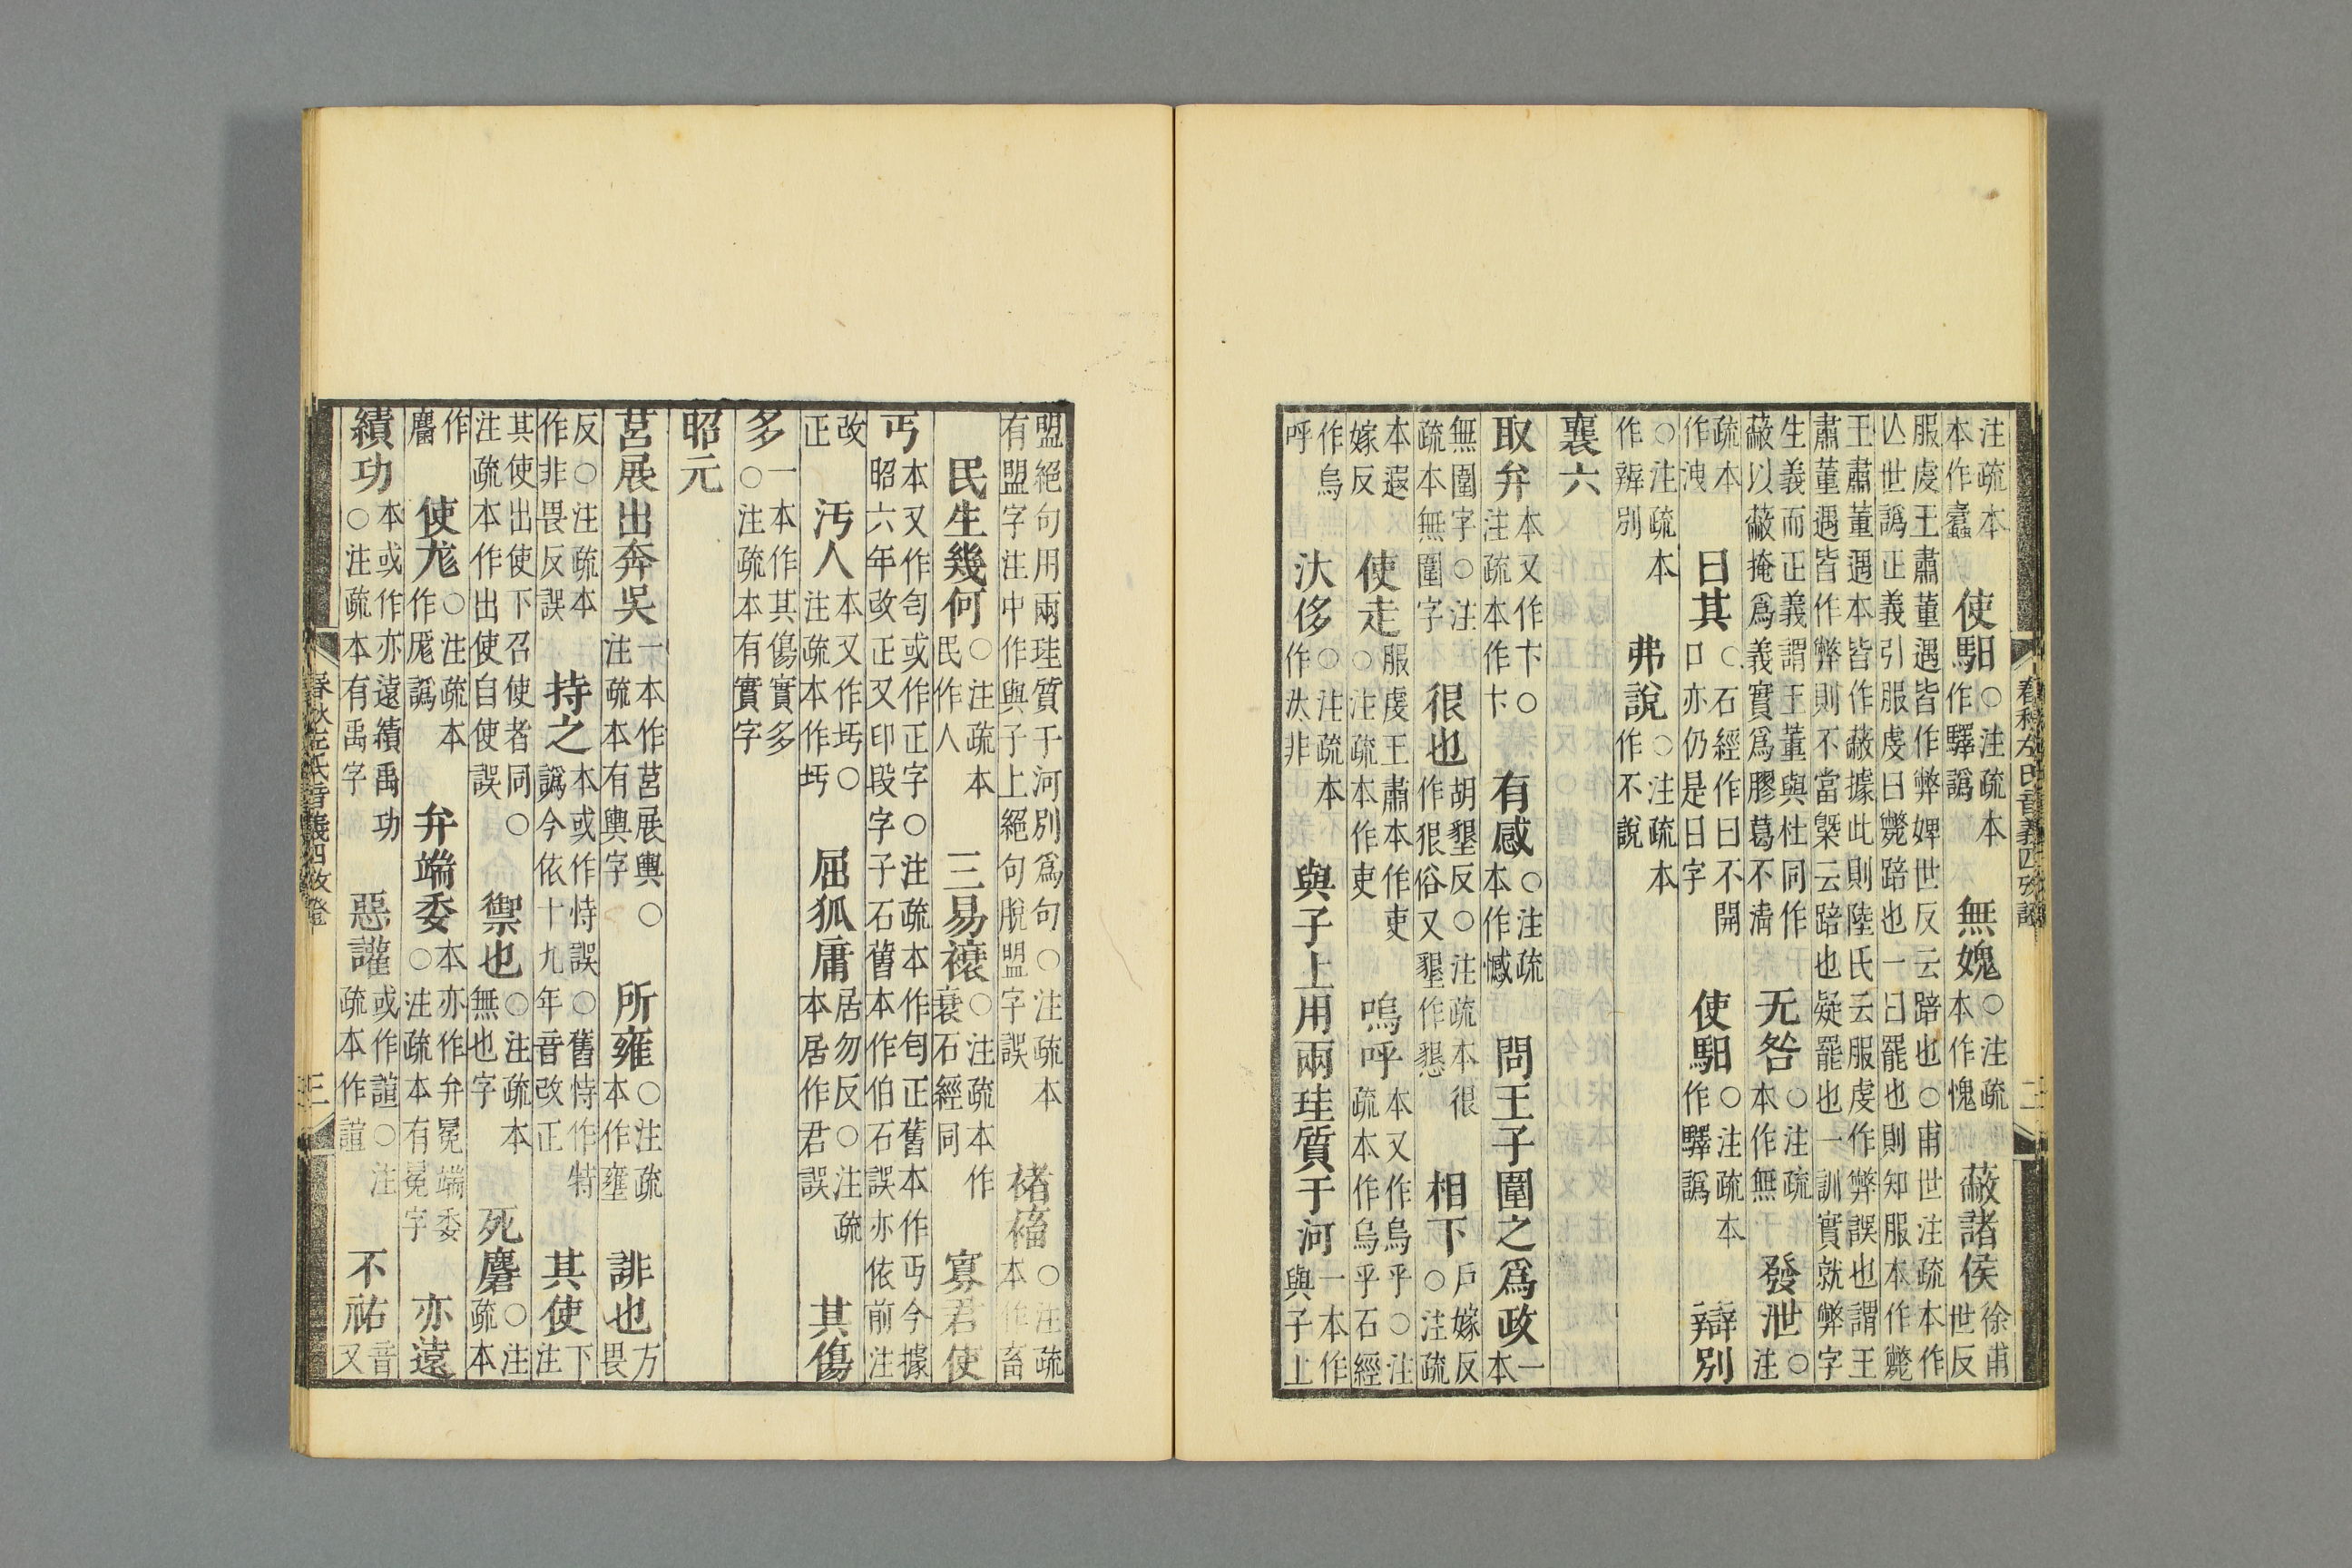 注疏本本作蠹　使馹○注疏本作驛譌　無媿○注疏本作愧　蔽諸侯徐甫世反
服虔王肅董遇皆作弊婢世反云踣也○甫世注疏本作亾世譌正義引服虔曰斃踣也一曰罷也則知服本作斃
王肅董遇本皆作蔽據此則陸氏云服虔作弊誤也謂王肅董遇皆作弊則不當槩云踣也疑罷也一訓實就弊字
生義而正義謂王董與杜同作蔽以蔽掩爲義實爲膠葛不淸　无咎○注疏本作無　發泄○注
疏本作洩　曰其○石經作曰不開口亦仍是日字　使馹○注疏本作驛譌　辯別
○注疏本作辨別　弗說○注疏本作不說
襄六
取弁本又作卞○注疏本作卞　有感○注疏本作憾　問王子圍之爲政一本
無圍字○注疏本無圍字　很也胡墾反○注疏本很作狠俗又墾作懇　相下戶嫁反○注疏
本遐嫁反　使走服虔王肅本作吏○注疏本作吏　嗚呼本又作烏乎○注疏本作烏乎石經
作烏呼　汏侈○注疏本作汰非　與子上用兩珪質于河一本作與子上
春秋左氏音義四攷證　二
盟絕句用兩珪質于河別爲句○注疏本有盟字注中作與子上絕句脫盟字誤　褚䄙○注疏本作畜
民生幾何○注疏本民作人　三易衰○注疏本作衰石經同　寡君使
丐本又作匄或作正字○注疏本作匄正舊本作丐今據昭六年改正又印段字子石舊本作伯石誤亦依前注
改正　汚人本又作圬○注疏本作圬　屈狐庸居勿反○注疏本居作君誤　其傷
多一本作其傷實多○注疏本有實字
昭元
莒展出奔吳一本作莒展輿○注疏本有輿字　所雍○注疏本作壅　誹也方畏
反○注疏本作非畏反誤　持之本或作恃誤○舊恃作特譌今依十九年音改正　其使下注
其使出使下召使者同○注疏本作出使自使誤　禦也○注疏本無也字　死麕○注疏本
作麏　使尨○注疏本作厖譌　弁端委本亦作弁冕端委○注疏本有冕字　亦遠
績功本或作亦遠績禹功○注疏本有禹字　惡讙或作諠○注疏本作諠　不祐音又
春秋左氏音義四攷證　三